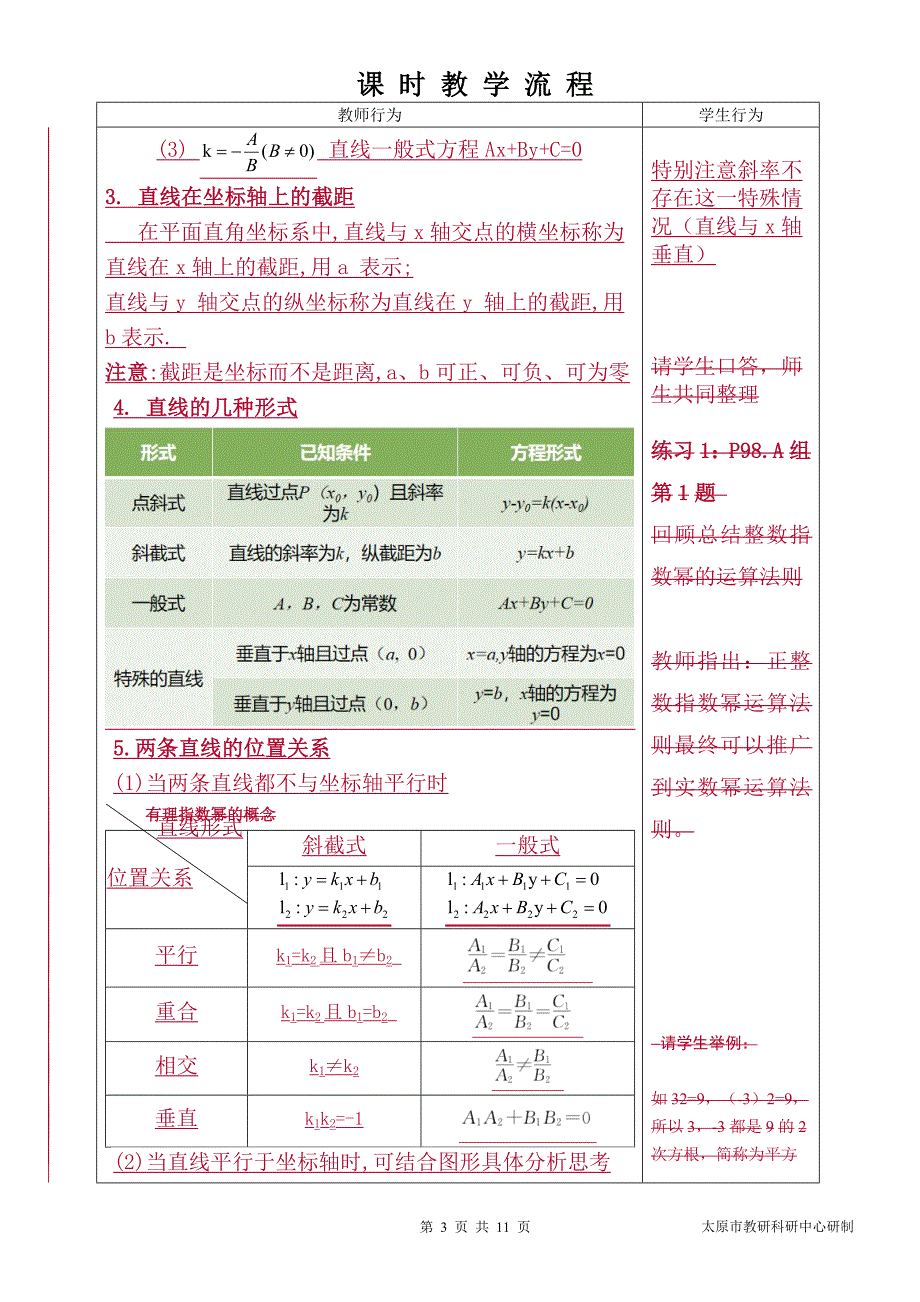 课 时 教 学 流 程
教师行为
学生行为
(3) k=-A/B(B≠0) 直线一般式方程Ax+By+C=0
3. 直线在坐标轴上的截距
在平面直角坐标系中,直线与x轴交点的横坐标称为
直线在x轴上的截距,用a 表示;
直线与y 轴交点的纵坐标称为直线在y 轴上的截距,用
b表示.
注意:截距是坐标而不是距离,a、b可正、可负、可为零
4. 直线的几种形式
形式 已知条件 方程形式
点斜式 直线过点P（x₀，y₀）且斜率
为k y-y₀=k(x-x₀)
斜截式 直线的斜率为k，纵截距为b y=kx+b
一般式 A，B，C为常数 Ax+By+C=0
特殊的直线 垂直于x轴且过点（a, 0） x=a,y轴的方程为x=0
垂直于y轴且过点（0，b） y=b，x轴的方程为
y=0
5.两条直线的位置关系
(1)当两条直线都不与坐标轴平行时
有理指数幂的概念
直线形式
位置关系
斜截式 一般式
l₁:y=k₁x+b₁ l₁:A₁x+B₁y+C₁=0
l₂:y=k₂x+b₂ l₂:A₂x+B₂y+C₂=0
平行 k₁=k₂且b₁≠b₂ A₁/A₂=B₁/B₂≠C₁/C₂
重合 k₁=k₂且b₁=b₂ A₁/A₂=B₁/B₂=C₁/C₂
相交 k₁≠k₂ A₁/A₂≠B₁/B₂
垂直 k₁k₂=-1 A₁A₂+B₁B₂=0
(2)当直线平行于坐标轴时,可结合图形具体分析思考
特别注意斜率不
存在这一特殊情
况（直线与x轴
垂直）
请学生口答，师
生共同整理
练习1：P98.A组
第1题
回顾总结整数指
数幂的运算法则
教师指出：正整
数指数幂运算法
则最终可以推广
到实数幂运算法
则。
请学生举例：
如32=9，（-3）2=9，
所以3，-3都是9的2
次方根，简称为平方
第 3 页 共 11 页
太原市教研科研中心研制